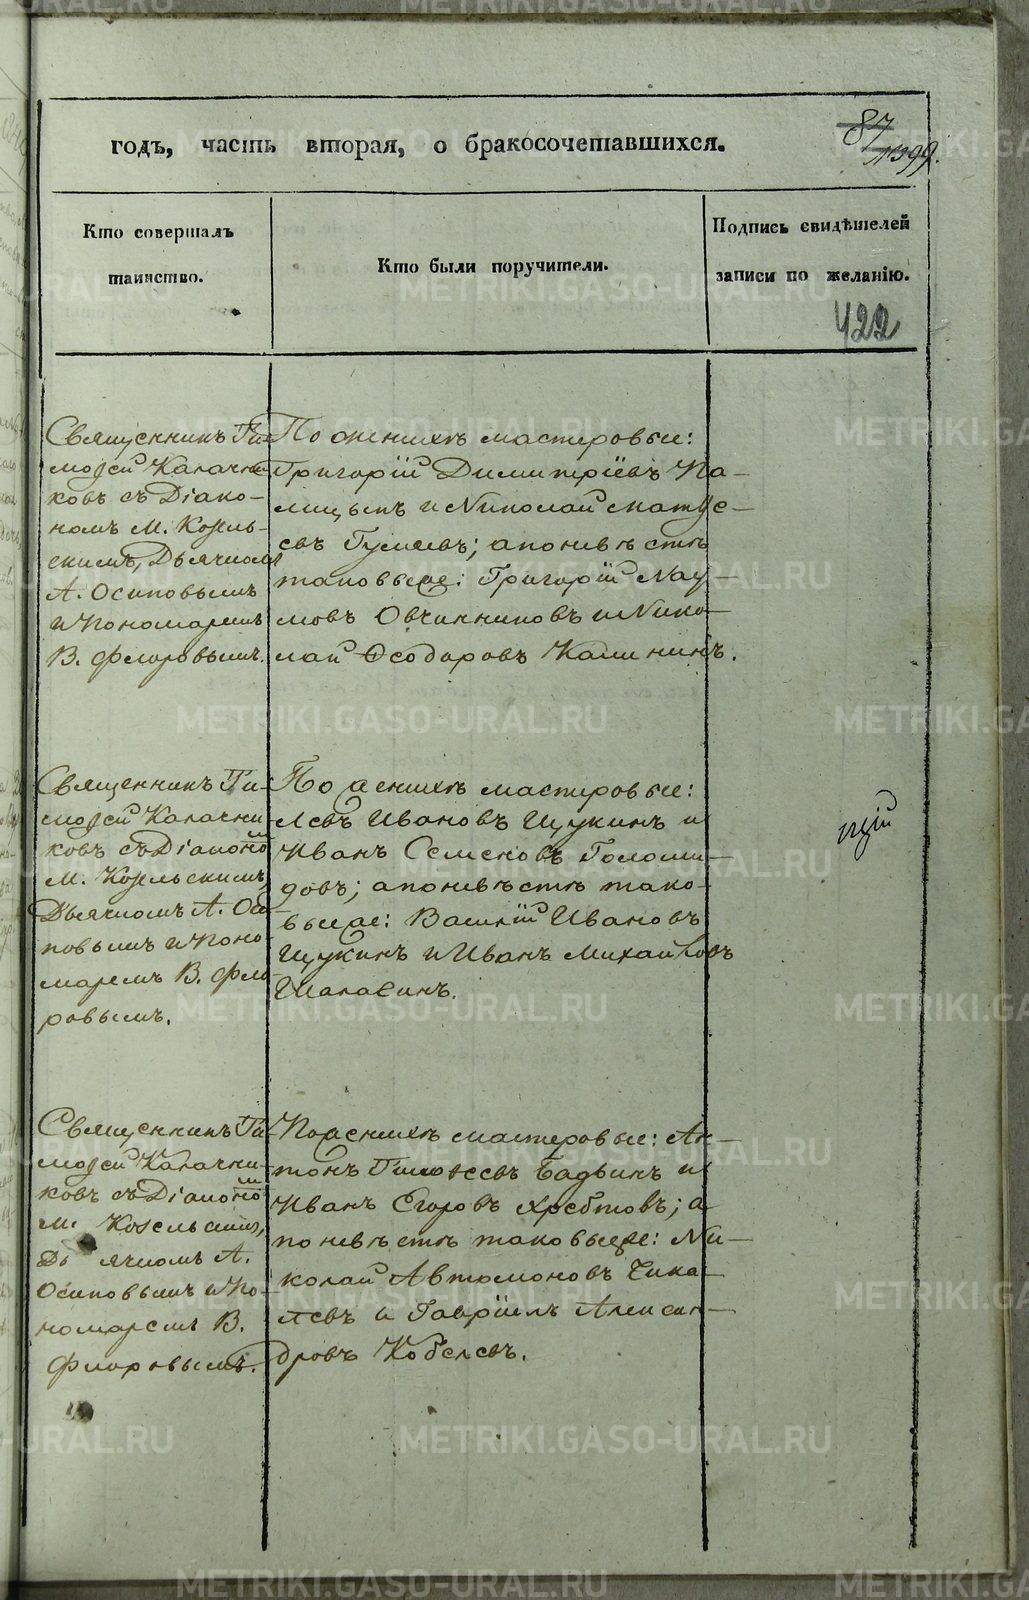 годъ, часть вторая, о бракосочетавшихся.
87
1399.
Кто совершалъ
таинство.
Кто были поручители.
Подпись свидѣтелей
записи по желанію.
422
Священникъ Ти-
моѳей Калачни-
ковъ съ Діако-
номъ М. Козель-
скимъ, Дьячкомъ
А. Осиповымъ
и Пономаремъ
В. Флоровымъ.
По женихѣ мастеровые:
Григорій Димитріевъ Па-
лицынъ и Николай Матѳе-
евъ Гуляевъ; а по невѣстѣ
таковые же: Григорій Нау-
мовъ Овчинниковъ и Нико-
лай Ѳеодоровъ Калининъ.
Священникъ Ти-
моѳей Калачни-
ковъ съ Діакономъ
М. Козельскимъ,
Дьячкомъ А. Оси-
повымъ и Поно-
маремъ В. Фло-
ровымъ.
По женихѣ мастеровые:
Левъ Ивановъ Щукинъ и
Иванъ Семеновъ
а по невѣстѣ тако-
вые же: Василій Ивановъ
Щукинъ и Иванъ Михайловъ
Священникъ Ти-
моѳей Калачни-
ковъ съ Діакономъ
М. Козельскимъ,
Дьячкомъ А.
Осиповымъ и По-
номаремъ В.
Флоровымъ.
По женихѣ мастеровые: Ан-
тонъ Тимоѳеевъ Бадьинъ и
Иванъ Егоровъ Хребтовъ; а
по невѣстѣ таковые же: Ни-
колай Автомоновъ
и Гавріилъ Алексан-
дровъ Кобелевъ.
METRIKI.GASO-URAL.RU